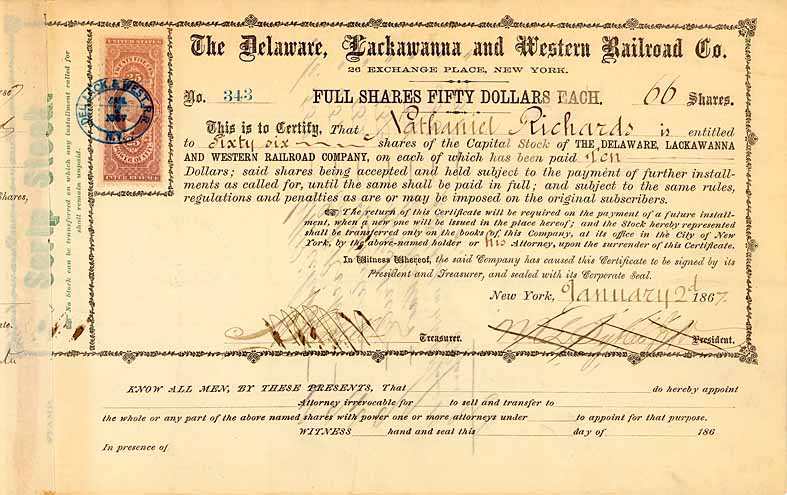 The Delaware, Lackawanna and Western Railroad Co.
26 EXCHANGE PLACE, NEW YORK.
No. 343 FULL SHARES FIFTY DOLLARS EACH. 66 Shares.
This is to Certify, That Nathaniel Richards is entitled
to Sixty six shares of the Capital Stock of THE DELAWARE, LACKAWANNA
AND WESTERN RAILROAD COMPANY, on each of which has been paid Ten
Dollars; said shares being accepted and held subject to the payment of further install-
ments as called for, until the same shall be paid in full; and subject to the same rules,
regulations and penalties as are or may be imposed on the original subscribers.
The return of this Certificate will be required on the payment of a future install-
ment, when a new one will be issued in the place hereof; and the Stock hereby represented
shall be transferred only on the books of this Company, at its office in the City of New
York, by the above-named holder or his Attorney, upon the surrender of this Certificate.
In Witness Whereof, the said Company has caused this Certificate to be signed by its
President and Treasurer, and sealed with its Corporate Seal.
New York, January 2d 1867.
Treasurer. President.
KNOW ALL MEN, BY THESE PRESENTS, That do hereby appoint
Attorney irrevocable for to sell and transfer to
the whole or any part of the above named shares with power one or more attorneys under to appoint for that purpose.
WITNESS hand and seal this day of 186
In presence of
No Stock can be transferred on which any installment called for
shall remain unpaid.
Scrip Stock
STAMP.
DEL. LACK. & WEST. R.R.
1867
N.Y.
UNITED STATES
25 25
INTER. REVENUE
Shares,